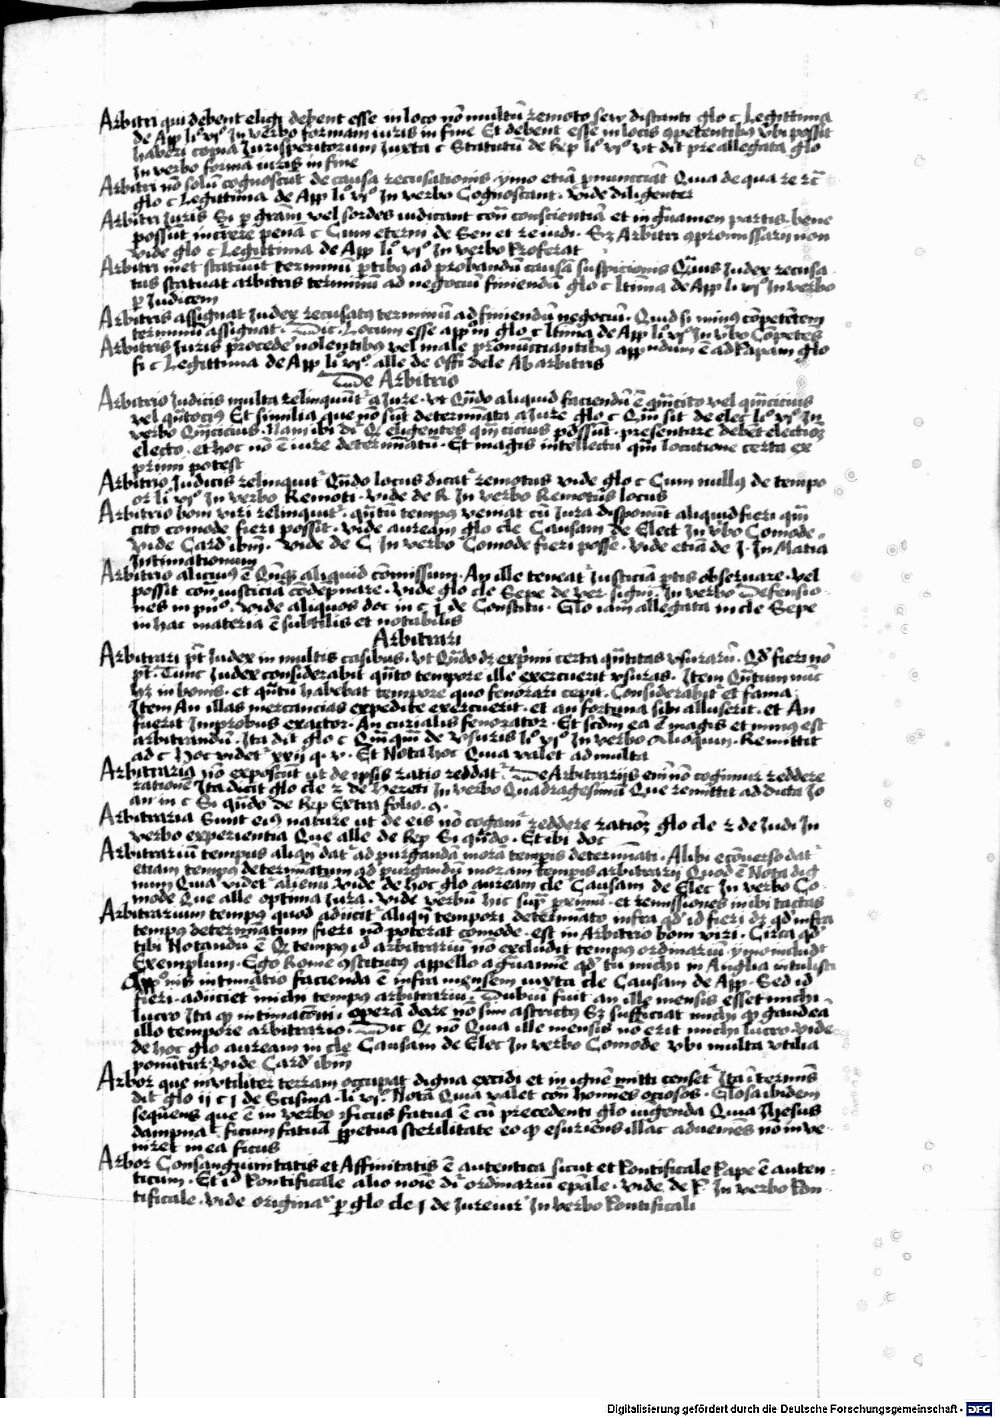 Arbitri qui debent eligi debent esse in loco nō multū remoto seu distanti glo c Legittima
de App li° vj° In verbo formam iuris in fine Et debent esse in locis ꝯpetentibꝰ vbi possit
haberi copia Iurisperitorum Iuxta c Statutū de Rep li° vj° vt dit preallegata glo
In verbo formā iuris in fine
Arbitri nō solū cognoscūt de causa recusationis ymo etiā ꝓnunctiāt Quia de qua re rc̄
glo c Legittima de App li° vj° In verbo Cognoscant. Vide diligenter
Arbitri Iuris Si ꝑ grām vel sordes iudicant con̄ conscientiā et in gͣuamen partis bene
possūt incrr̄ere penā c Cum eterni de Sen et re iudi. Sꝫ Arbitri ꝯpromissarij non
vide glo c Legittima de App li° vj° In verbo Proferat
Arbitri met statuūt terminū ꝑtibꝰ ad probandū causā suspicionis Qͣuis Iudex recusa
tus statuat arbitris terminū ad negociū finiendū glo c ltima de App li vj° In verbo
ꝑ Iudicem
Arbitris assignat Iudex recusatꝰ terminū ad finiendū negociū. Quid si minꝰ cōpetētem
terminū assignat. Dic. Locum esse appōni glo c ltima de App li° vj° In v̄bo Cōpetēs
Arbitris Iuris procedē nolentibꝰ vel male pronūsctiantibꝰ appndum ē ad Papam glo
fi c Legittima de App li° vj°. alle de Offi dele Ab arbitris
De Arbitrio
Arbitrio Iudicis multa relinquūtʳ a Iure. vt Qn̄do aliquid faciendū ē qm̄cito vel qm̄cicius
vel qn̄tociꝰ Et similia que nō sūt determinata a Iure glo c Qm̄ sit de elec li° vj° In
verbo Qm̄cicius. Nam ibi dʳ Qꝫ eligentes qm̄ cicius possūt. presentare debēt electiōꝫ
electo. et hoc nō ē iure determinatū. Et magis intellectu qm̄ locutione certa ex
primi potest
Arbitrio Iudicis relinquitʳ Qn̄do locus dicatʳ remotus vide glo c Cum nullꝰ de tempo
or li° vj° In verbo Remoti. vide de R In verbo Remotus locus
Arbitrio boni viri relinquitʳ. qn̄tū tempꝰ veniat cū Iura disponūt aliquid fieri qm̄
cito comode fieri possit. Vide auream glo cle Causam de Elect In v̄bo Comode.
Vide Card ibm̄. Vide de C In verbo Comode fieri posse. Vide etiā de I. In Matia
Intimationum
Arbitrio aliciuꝰ ē Qn̄qꝫ aliquid cōmissum. An ille teneatʳ Iusticiā ꝑtis obseruare. vel
possit con̄ iusticia codēpnare. Vide glo cle Sepe de ver signi. In verbo Defensio
nes in pn°. Vide aliquos doc in c j de Constitu. Glo iam allegata in cle Sepe
in hac materia ē subtilis et notabilis
Arbitrari
Arbitrari pt̄ Iudex in multis casibus. vt Qn̄do dꝫ exprimi certa qn̄titas vsurarū. Qd̄ fieri nō
pt̄. Tunc Iudex considerabit qn̄to tempore ille exercuerit vsuras. Item Qn̄tum nūc
hꝫ in bonis. et qn̄tū habebat tempore quo fenōrari cepit. Considerabitʳ et fama
Item An illas mercancias expedite exercuerit. et an fortuna sibi alluserit. et An
fuerit Improbus exactor. An curialis fenorator. Et scdm ea ē magis et minꝰ est
arbitrandū. Ita dit glo c Qm̄qm̄ de Vsuris li° vj° In verbo Alioquin. Remittit
ad c Hoc videtʳ xxij q. v. Et Nota hoc Quia valet ad multa
Arbitrariꝫ nō exposcūt ut de ipsis ratio reddatʳ De Arbitrarijs eni nō cogimur reddere
rationē Ita dicit glo cle 2 de Hereti In verbo Quadragesimū Que remittit ad dicta Io
an in c Si qn̄do de Rep Extra folio. 9.
Arbitraria Sunt eiꝰ nature ut de eis nō cogamʳ reddere ratiōꝫ glo cle 2 de Iudi In
verbo experientia Que alle de Rep Si qn̄do. Et ibi doc
Arbitrariū tempus aliqn̄ datʳ ad purgandā morā tempis determinati. Alibi ecōuerso datʳ
etiam tempꝰ determinatum ad purgandū moram tempis arbitrarij Quod ē Nota dig
num Quia videtʳ alienū. vide de hoc glo auream cle Causam de Elec In verbo Co
mode Que alle optima Iura. Vide verbū hic supͣ primū. et remissiones in ibi tactas
Arbitrarium tempꝰ quod adiicitʳ aliqn̄ tempori determinato infra qd̄ id fieri dꝫ qd̄ infra
tempꝰ determinatum fieri nō poterat comode. est in Arbitrio boni viri. Circa qd̄
tibi Notandū ē Qꝫ tempꝰ id arbitrariū nō excludit tempꝰ ordinariū ymo includit
Exemplum. Ego Rome ꝯstitutꝰ appello a gͣuamīe qd̄ tu michi in Anglia intulisti
App°nis intimatio facienda ē infra mensem iuxta cle Causam de App. Sed id
fieri. adiicietʳ michi tempꝰ arbitrariū. Dubiū fuit an ille mensis esset michi
lucro Ita qꝫ intimacōni operā dare nō sim astrictꝰ Sꝫ sufficiat michi qꝫ gaudeā
illo tempore arbitrario. Dic Qꝫ nō Quia ille mensis nō erit michi lucro. vide
de hoc glo auream in cle Causam de Elec In verbo Comode vbi multa vtilia
ponūtur. vide Card ibm
Arbor que inutiliter terram occupat digna excidi et in ignē mitti censetʳ Ita ī terminis
dit glo ij c j de Scisma. li° vj° Nota Quia valet con̄ homines ociosos. Glosa ibidem
sequens que ē in verbo ꝓficus fatua ē cū precedenti glo iugenda Quia Ihesus
dampnat ficum fatuā ꝑpetua sterilitate eo qꝫ esuriens illac adueniēs nō inve
niret in ea ficus
Arbor Consanguinitatis et Affinitatis ē autentica sicut et Pontificale Pape ē auten-
ticum. Et id Pontificale alio noīe dʳ ordinariū epale. vide de P. In verbo Pon
tificale. vide originaʳ ꝑ glo cle j de Iureiurʳ In verbo Pontificali
Digitalisierung gefördert durch die Deutsche Forschungsgemeinschaft - DFG